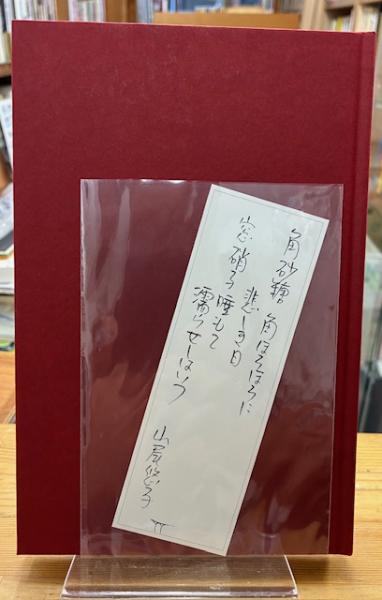 角砂糖 角ほろほろに
悲しき日
窓硝子 唾もて
濡らせしはいつ
山尾悠子